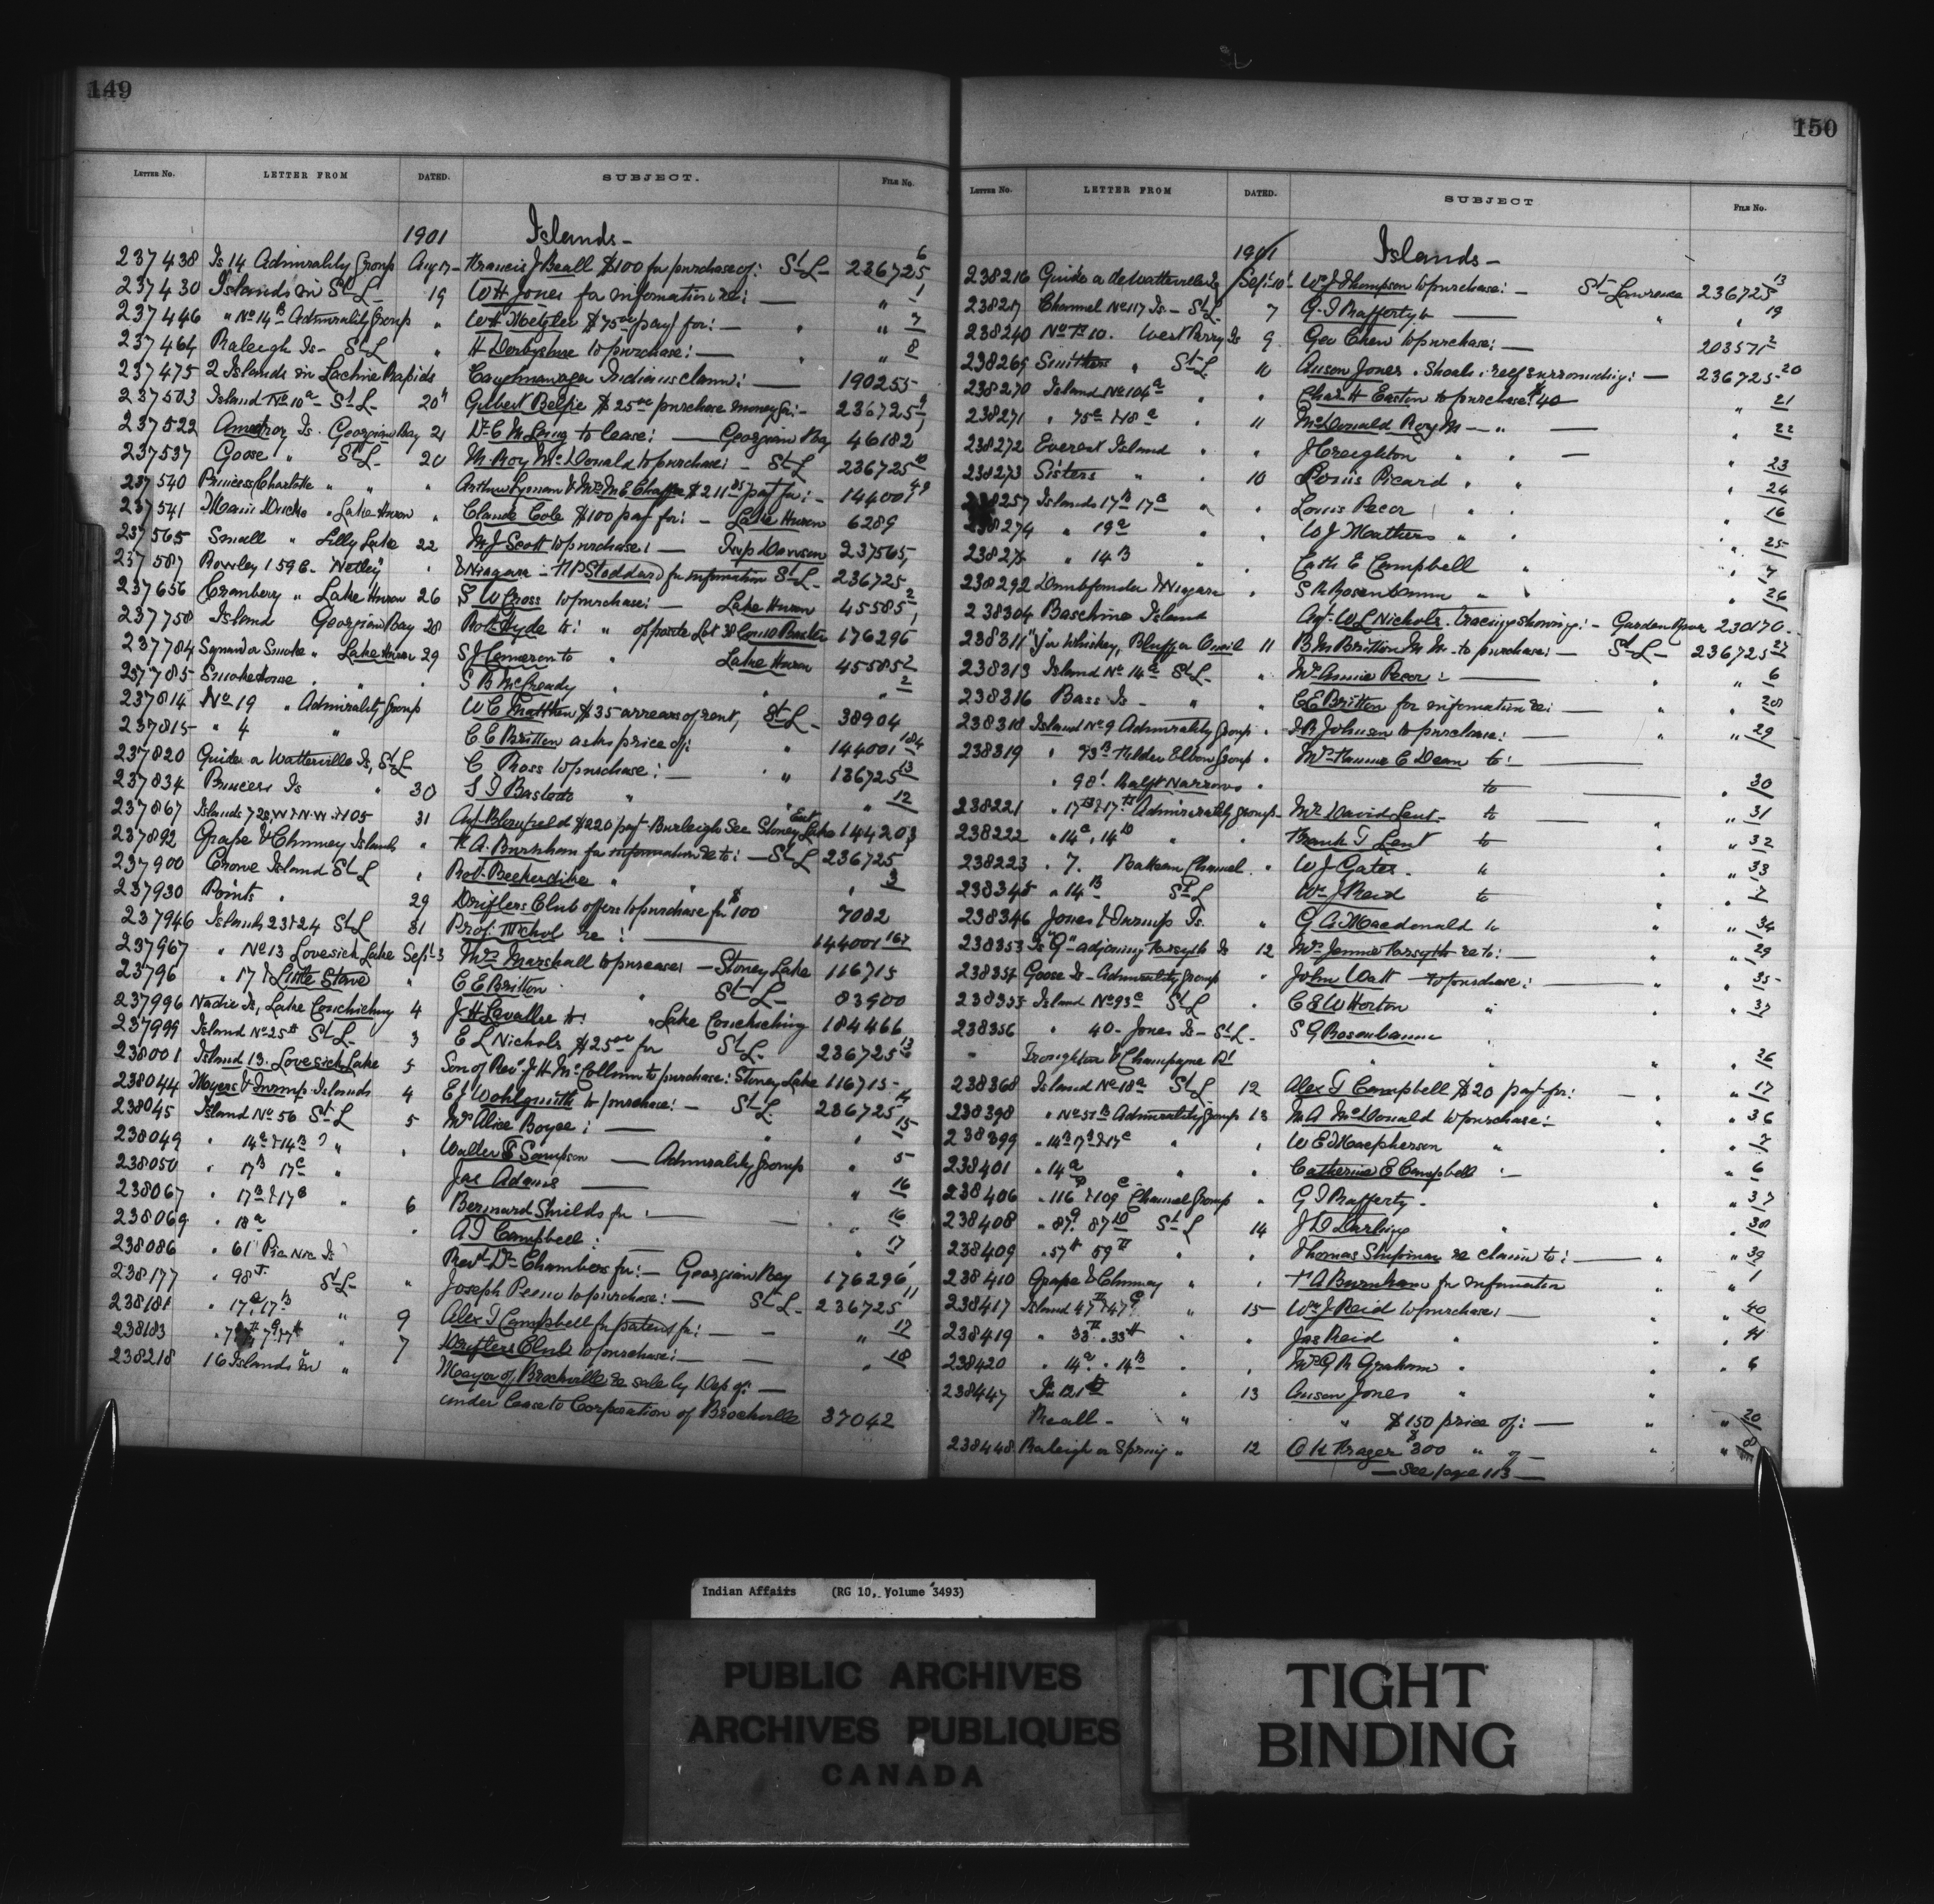 149
LETTER No. LETTER FROM DATED. SUBJECT. FILE No.
1901 Islands -
237438 Is 14 Admirality Group Aug 17 - Francis J Beall $100 for purchase of: St L - 236725 6
237430 Islands in St L - 19 W H Jones for information re: — " 1
237446 " No 14 B Admirality Group " W H Metzler $75 00 pay't for: — " " 7
237464 Raleigh Is - St L " H Derbyshire to purchase: — " " 8
237475 2 Islands in Lachine Rapids Caughnawaga Indians claim: — 190255
237503 Island No 10 a - St L - 20 Gilbert Belfie $25 00 purchase money for: - 236725 9
237522 Is. Georgian Bay 21 to lease: — Georgian Bay 46182
237537 Goose " St L - 20 M. Roy McDonald to purchase: - St L 236725 10
237540 Princess Charlotte " " " Arthur Lyman & Mrs M E Chaffee $211 pay't for: - 144001 49
237541 Main Duck " Lake Huron " Claude Cole $100 pay for: - Lake Huron 6289
237565 Small " Lilly Lake 22 M J Scott to purchase: — Twp Dawson 237565
237587 Rowley 159 C - "Netley" " & Niagara - N P Stoddard for information St L - 236725
237656 Cranberry " Lake Huron 26 S W Cross to purchase: — Lake Huron 45585 2
237758 Island Georgian Bay 28 Robt Hyde to: " opposite Lot 38 Con 10 Baxter 176296
237784 Squaw or Smoke " Lake Huron 29 S J Cameron to " Lake Huron 45585 2
237785 Smokehouse " " " S B McCready " " " 2
237814 No 19 " Admirality Group W C $35 arrears of rent, St L - 38904
237815 " 4 " C E Britton asks price of: " 144001 184
237820 Guide a Watterville Is, St L C Ross to purchase: — " 136725 13
237834 Princess Is " 30 S J Bastedo " " 12
237867 Islands 72 & W & N.W. & 105 31 Agt. $220 pay't Burleigh See Stoney Lake East 144203
237892 Grape & Chimney Islands " H A. Burnham for information re to: — St L 236725 1
237900 Crowe Island St L " Robt. Beckerdike " " " 3
237930 Points " 29 Drifters Club offers to purchase for $100 7082
237946 Islands 23 & 24 St L 31 Prof. Nichol re: — 144001 167
237967 " No 13 Lovesick Lake Sept 3 Mrs Marshall to purchase: — Stoney Lake 116715
23796 " 17 & Little Stave " C E Britton " St L - 83900
237996 Is, Lake Couchiching 4 J H Lavallee to: " Lake Couchiching 184466
237999 Island No 25 St L - 3 E L Nichols $25 00 for St L - 236725 13
238001 Island 13. Lovesick Lake 5 Son of Revd J H McCollum to purchase: Stoney Lake 116715 -
238044 Meyers & Trump Islands 4 E J Wohlgmuth to purchase: — St L - 236725 14
238045 Island No 56 St L 5 Mrs Alice Boyce: — " " 15
238049 " 14 a & 14 B ? " " Walter E Sampson — Admirality Group " 5
238050 " 17 B 17 C " Jas Adams — " 16
238067 " 17 B & 17 C " 6 Bernard Shields for: — " " 16
238069 " 18 a " A T Campbell: — " 17
238086 " 61 Pic Nic Is Revd Dr Chambers for: — Georgian Bay 176296
238177 " 98 St L - " Joseph Peene to purchase: — St L - 236725 11
238181 " 17 a 17 B " 9 Alex T Campbell for patent for: — " 17
238183 " 7 Drifters Club to purchase: — " 18
238218 16 Islands in " Mayor of Brockville re sale by Dep of: —
under Lease to Corporation of Brockville 37042
150
LETTER No. LETTER FROM DATED. SUBJECT FILE No.
1901 Islands -
238216 Guide a de Watterville Is Sept 10 Wm J Thompson to purchase: — St Lawrence 236725 13
238217 Channel No 117 Is - St L 7 G. I Rafferty to — " " 19
238240 No 10. West Parry Is 9 Geo Chew to purchase: — 203571 2
238265 " St L 10 Anson Jones. Shoals & reef surrounding: — 236725 20
238270 Island No 104 a " " Chas H Easton to purchase $40 " 21
238271 " 75 a & 18 a " 11 McDonald Roy M — " — " 22
238272 Everest Island " " J Creighton " " — " 23
238273 Sisters " " 10 Louis Picard " " " 24
238257 Islands 17 B 17 C " " Louis Pecor " " " 16
238274 " 19 a " W J Mathers " " " 25
23827 " 14 B " " Cath E Campbell " " 7
238292 Dumbfounder & Niagara " S G Rosenbaum " " " 26
238304 Baschine Island Agt. W L Nichols. tracing showing: - Garden River 230170 -
238311 "Whiskey, Bluff or Quail 11 B M Britton M M - to purchase: — St L - 236725 27
238313 Island No 14 a St L - " Mrs Annie Pecor: — " " 6
238316 Bass Is - " " C E Britton for information re: — " " 28
238318 Island No 9 Admirality Group " J R Johnson to purchase: — " " 29
238319 " 73 B Fiddlers Elbow Group " Mrs Fannie C Dean to: —
" 98 Half Narrows " to — " 30
238221 " 17 B & 17 Admirality Group - Mr David Lent - to " " 31
238222 " 14 a, 14 B " " Frank T Lent to " " 32
238223 " 7. Bateau Channel " W J Gates. " " " 33
238345 " 14 B St L Wm J Reid to " " 7
238346 Jones & Trump Is. " G A Macdonald to " " 34
238353 Is "Q" adjoining Forsyth Is 12 Mrs Jennie Forsyth re to: — " " 29
238354 Goose Is - Admirality Group " John Watt to purchase: — " " 35
238355 Island No 93 a St L " C E W Horton " " " 37
238356 " 40 - Jones Is - St L - S G Rosenbaum "
" Troughton & Champagne Pt " " " 26
238368 Island No 18 a St L 12 Alex T Campbell $20 pay't for: — " " 17
238398 " No 51 B Admirality Group 13 M. A McDonald to purchase: — " 36
238399 " 14 B 17 B & 17 C " " W E Macpherson " " 7
238401 " 14 a " Catherine E Campbell " " 6
238406 " 116 & 109 Channel Group " G I Rafferty. " " 37
238408 " 87 87 St L 14 J D Darling " " " 38
238409 " 57 59 " " Thomas Shipman re claim to: — " " 39
238410 Grape & Chimney " " H A Burnham for information " " 1
238417 Island 47 & 47 " 15 Wm J Reid to purchase: — " " 40
238419 " 33 " 33 " " Jas Reid " " " 41
238420 " 14 a " 14 B " " Mrs G R Graham " " 6
238447 Is 121 " 13 Anson Jones " "
Beall - " " $150 price of: — " " 20
238448 Raleigh or Spring " 12 O K Fraser $300 " of — " " 8
— See page 113 —
Indian Affairs (RG 10, Volume 3493)
PUBLIC ARCHIVES
ARCHIVES PUBLIQUES
CANADA
TIGHT
BINDING